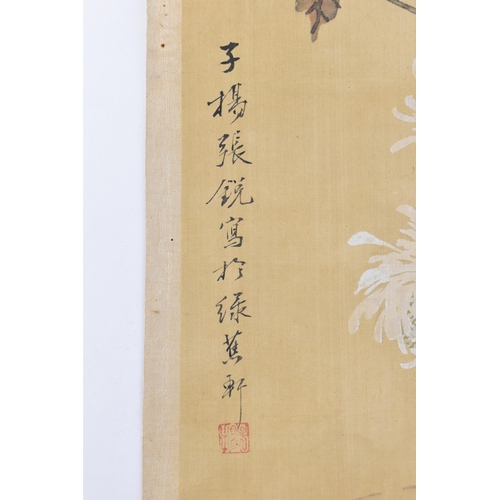 子楊張銳寫於綠蕉軒